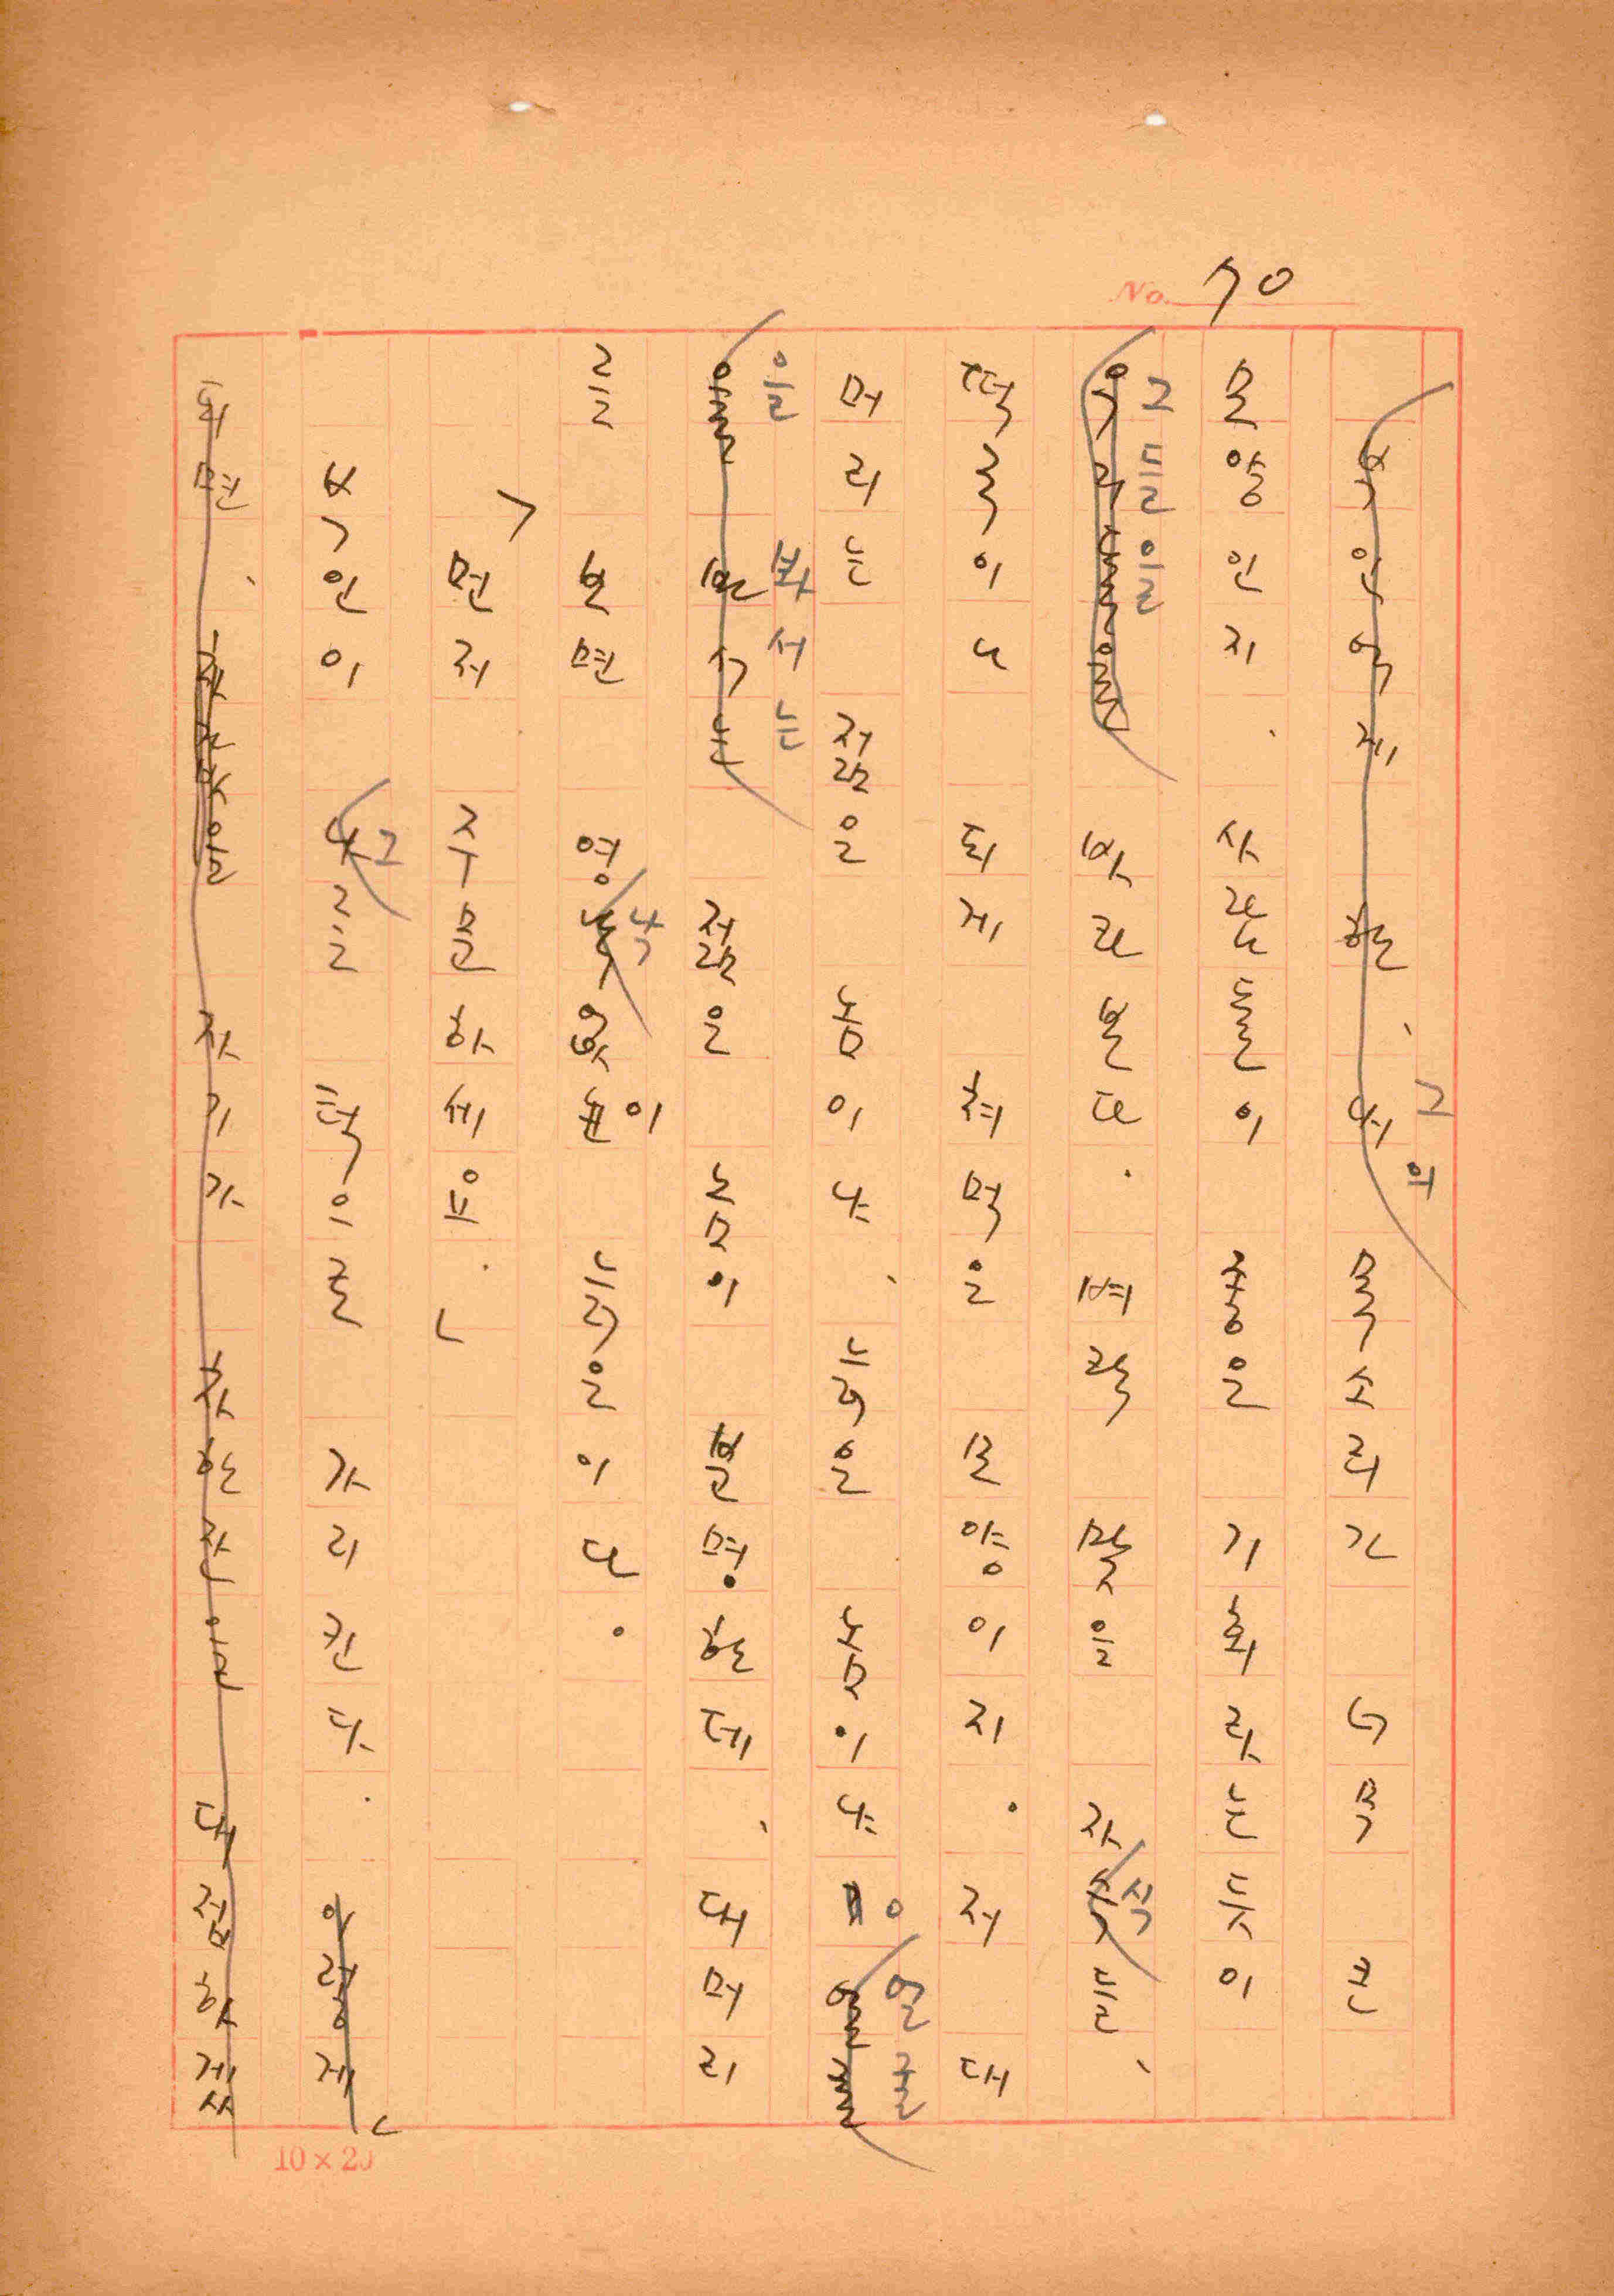 70
No.
부인에게 하는、내 그의 목소리가 너무 큰
모양인지. 사람들이 좋은 기회라는 듯이
우리들을 그들을 바라본다. 벼락 맞을 자식들、
떡국이나 되게 처먹은 모양이지. 저 대
머리는 젊은 놈이나、늙은 놈이나 얼굴
을 봐서는 젊은 놈이 분명한데、대머리
를 보면 영낙없이 늙은이다.
「먼저 주문하세요.」
부인이 나 그를 턱으로 가리킨다. 이렇게
되면、자기가 차 한 잔을 대접하게
10×20